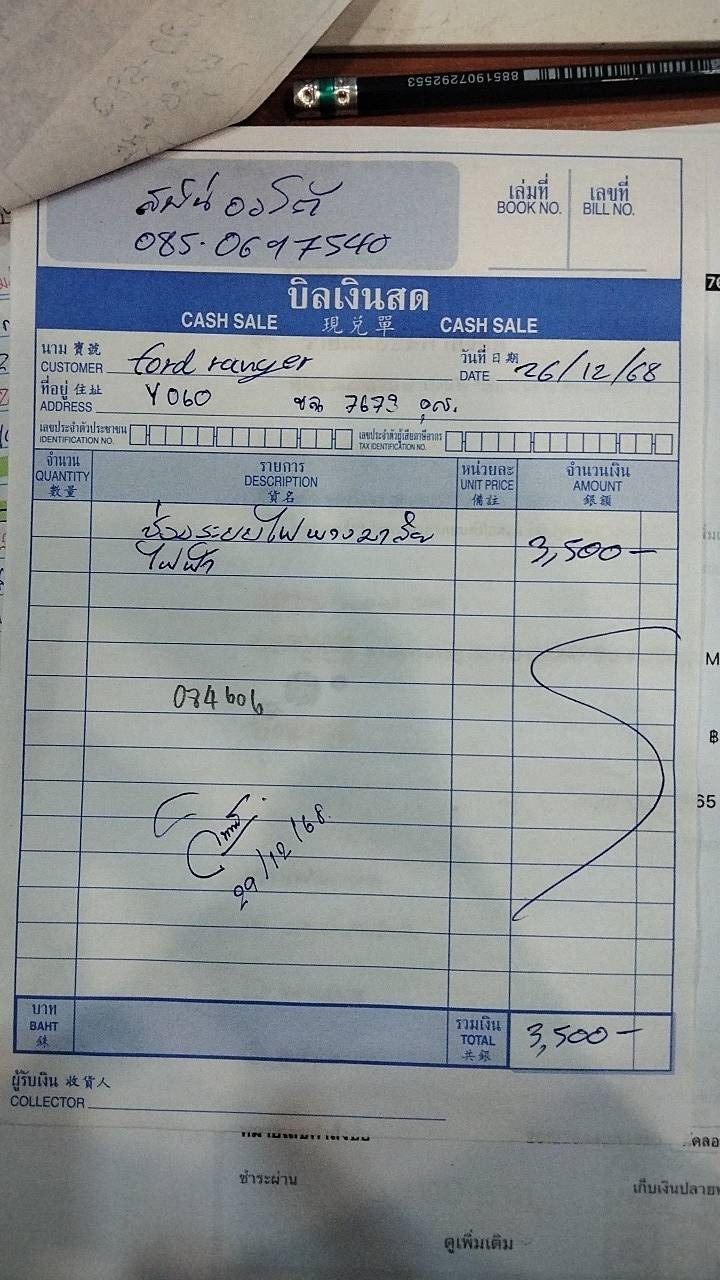 8851907292553
085-0697540
เล่มที่ เลขที่
BOOK NO. BILL NO.
บิลเงินสด
CASH SALE 現兌單 CASH SALE
นาม 寶號
CUSTOMER ford ranger
วันที่ 日期
DATE 26/12/68
ที่อยู่ 住址
ADDRESS Y060 ขฉ 7679 อุด.
เลขประจำตัวประชาชน เลขประจำตัวผู้เสียภาษีอากร
IDENTIFICATION NO. TAX IDENTIFICATION NO.
จำนวน รายการ หน่วยละ จำนวนเงิน
QUANTITY DESCRIPTION UNIT PRICE AMOUNT
數量 貨名 備註 銀額
ซ่อมระบบไฟพวงมาลัย
ไฟฟ้า 3,500-
084606
29/12/68
บาท รวมเงิน
BAHT TOTAL 3,500-
銖 共銀
ผู้รับเงิน 收貨人
COLLECTOR
ชำระผ่าน เก็บเงินปลายท
ดูเพิ่มเติม